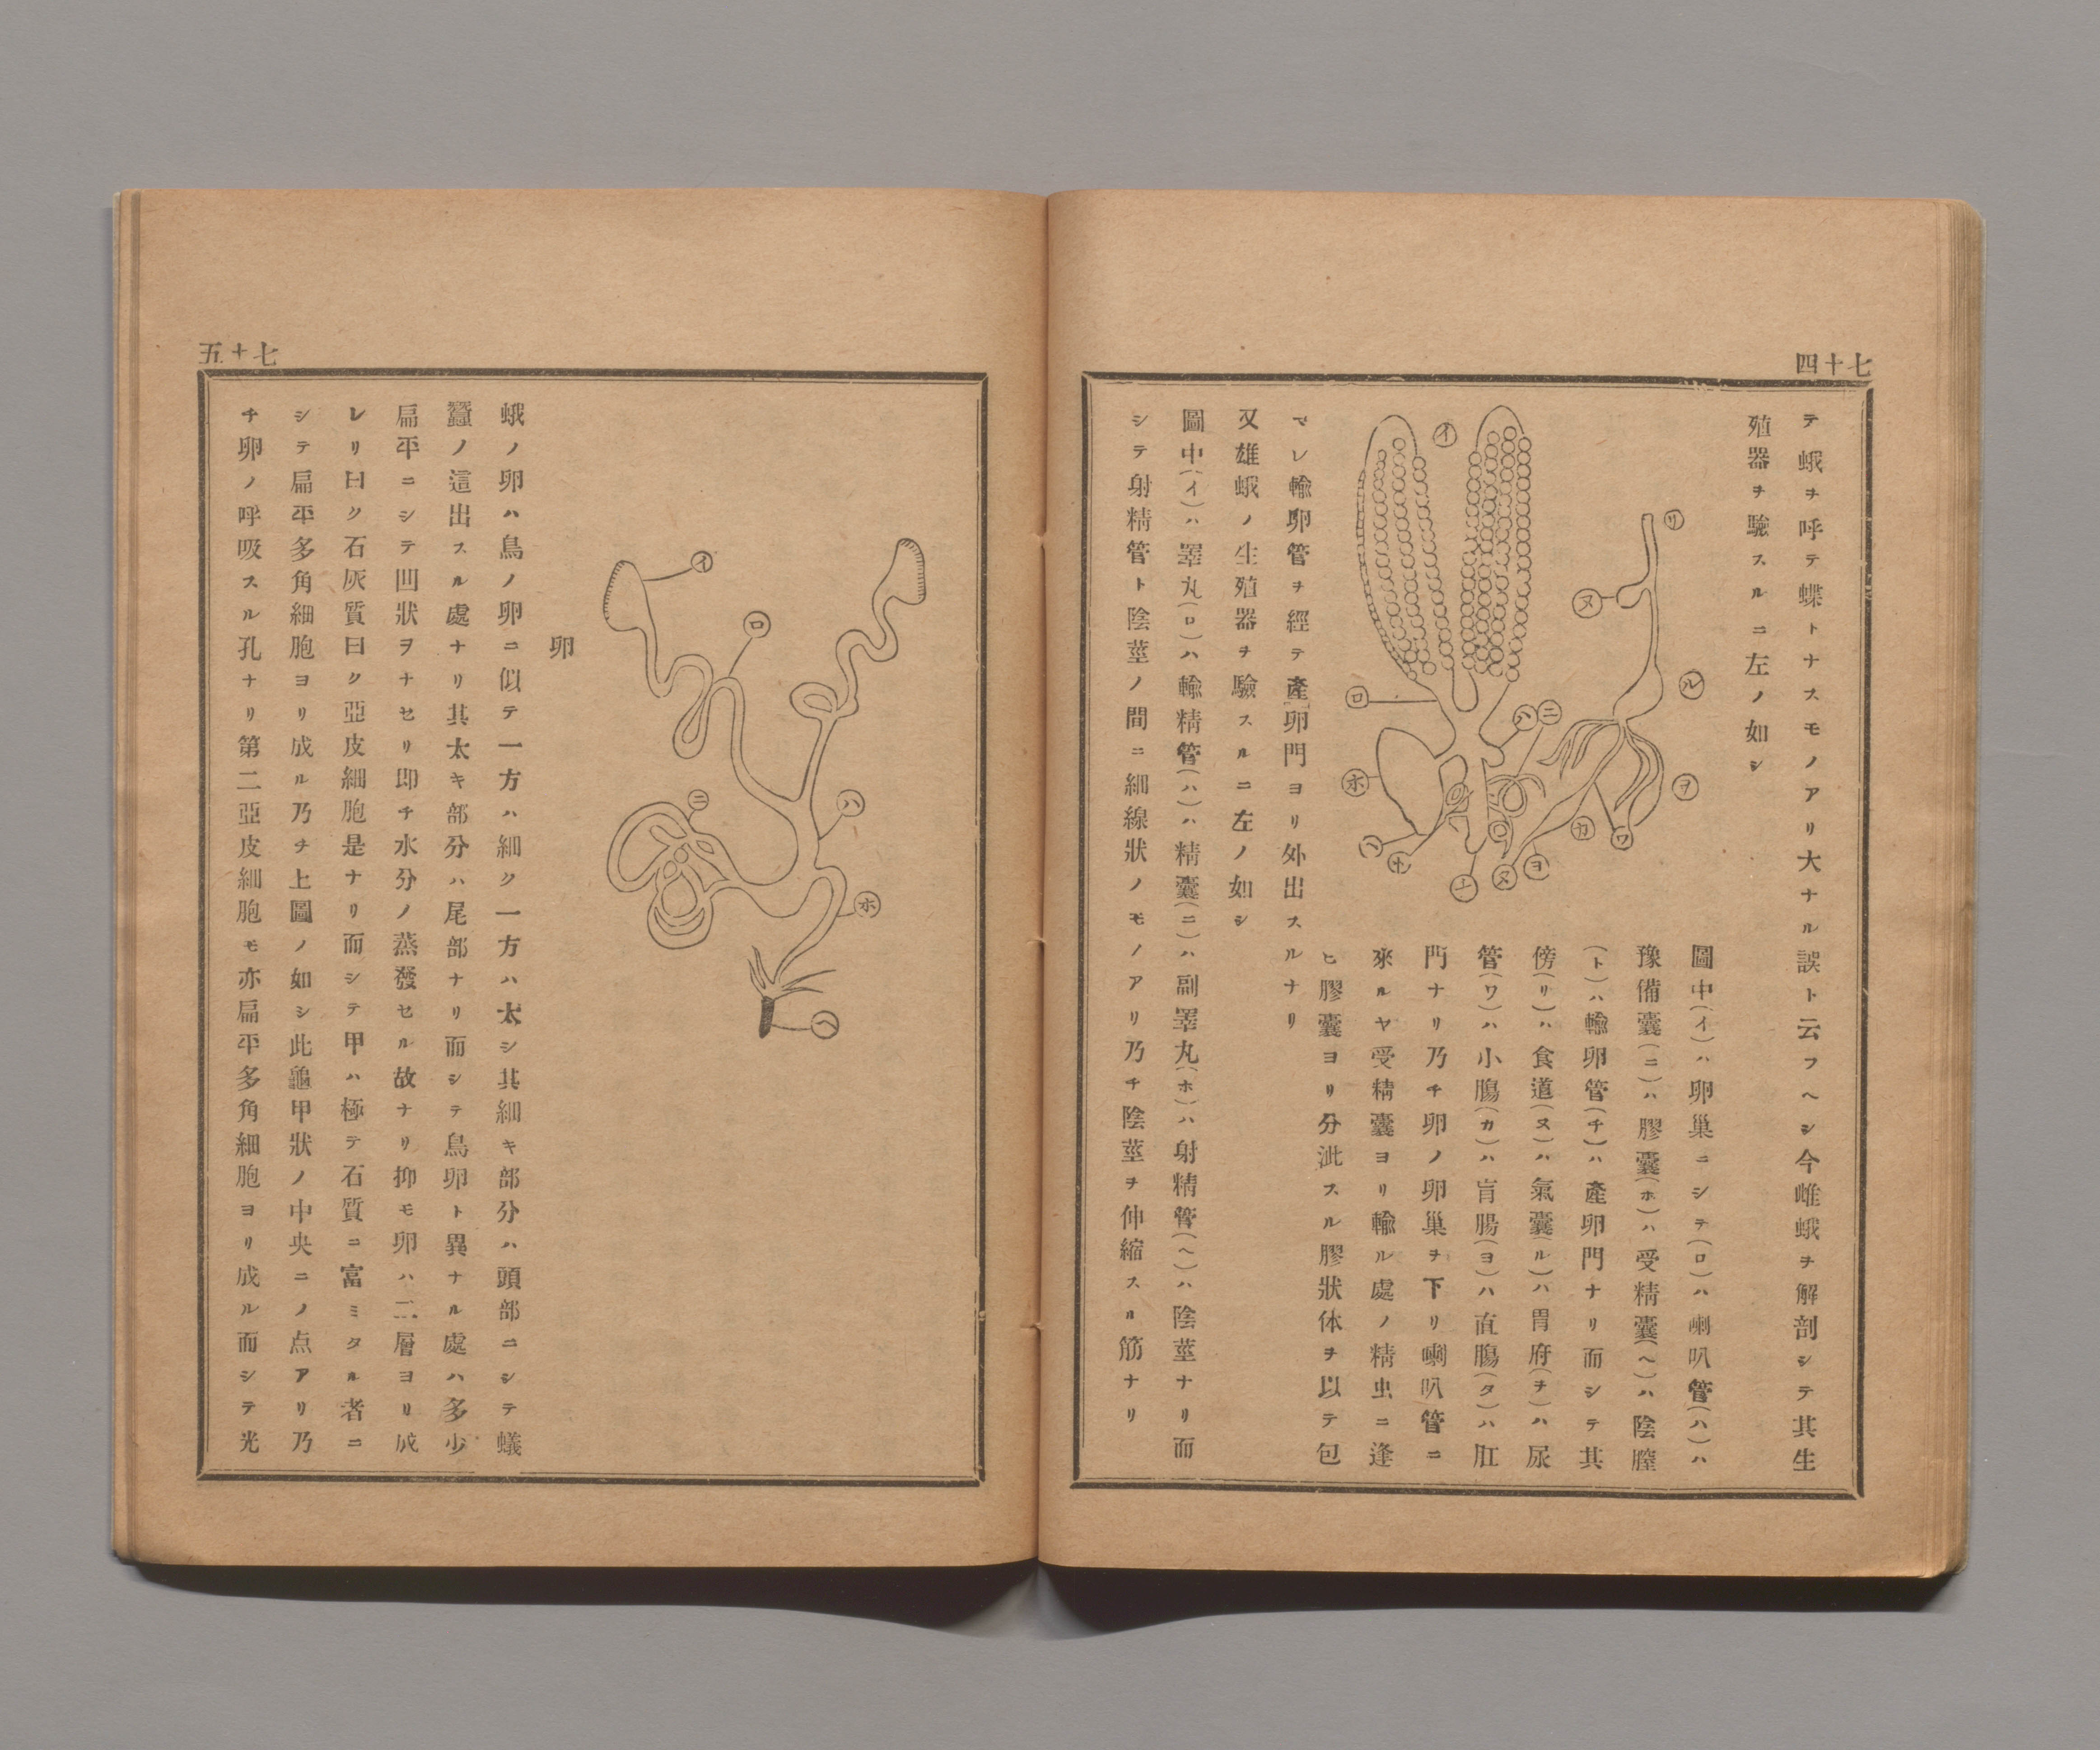 七十四
テ蛾ヲ呼テ蝶トナスモノアリ大ナル誤ト云フヘシ今雌蛾ヲ解剖シテ其生
殖器ヲ驗スルニ左ノ如シ
リ
ヌ
ル
ヲ
ワ
カ
ヨ
イ
ロ
ハ
ニ
ホ
ヘ
ト
チ
ヌ
圖中(イ)ハ卵巢ニシテ(ロ)ハ喇叭管(ハ)ハ
豫備囊(ニ)ハ膠囊(ホ)ハ受精囊(ヘ)ハ陰膣
(ト)ハ輸卵管(チ)ハ產卵門ナリ而シテ其
傍(リ)ハ食道(ヌ)ハ氣囊(ル)ハ胃府(ヲ)ハ尿
管(ワ)ハ小腸(カ)ハ盲腸(ヨ)ハ直腸(タ)ハ肛
門ナリ乃チ卵ノ卵巢ヲ下リ喇叭管ニ
來ルヤ受精囊ヨリ輸ル處ノ精虫ニ逢
ヒ膠囊ヨリ分泚スル膠狀体ヲ以テ包
マレ輸卵管ヲ經テ產卵門ヨリ外出スルナリ
又雄蛾ノ生殖器ヲ驗スルニ左ノ如シ
圖中(イ)ハ睪丸(ロ)ハ輸精管(ハ)ハ精囊(ニ)ハ副睪丸(ホ)ハ射精管(ヘ)ハ陰莖ナリ而
シテ射精管ト陰莖ノ間ニ細線狀ノモノアリ乃チ陰莖ヲ伸縮スル筋ナリ
七十五
イ
ロ
ハ
ニ
ホ
ヘ
卵
蛾ノ卵ハ鳥ノ卵ニ似テ一方ハ細ク一方ハ太シ其細キ部分ハ頭部ニシテ蟻
蠶ノ這出スル處ナリ其太キ部分ハ尾部ナリ而シテ鳥卵ト異ナル處ハ多少
扁平ニシテ凹狀ヲナセリ即チ水分ノ蒸發セル故ナリ抑モ卵ハ二層ヨリ成
レリ曰ク石灰質曰ク亞皮細胞是ナリ而シテ甲ハ極テ石質ニ富ミタル者ニ
シテ扁平多角細胞ヨリ成ル乃チ上圖ノ如シ此龜甲狀ノ中央ニノ点アリ乃
チ卵ノ呼吸スル孔ナリ第二亞皮細胞モ亦扁平多角細胞ヨリ成ル而シテ光